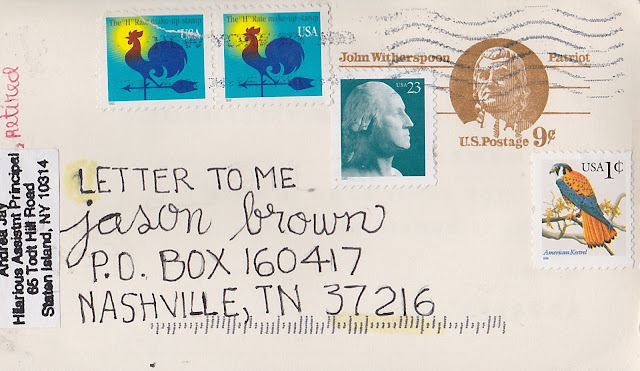 The "H" Rate make-up stamp
USA
The "H" Rate make-up stamp
USA
John Witherspoon
Patriot
U.S. Postage 9¢
USA 23
USA 1¢
American Kestrel
LETTER TO ME
jason brown
P.O. BOX 160417
NASHVILLE, TN 37216
Andrea Jay
Hilarious Assistmt Principal, Retired
65 Todt Hill Road
Staten Island, NY 10314